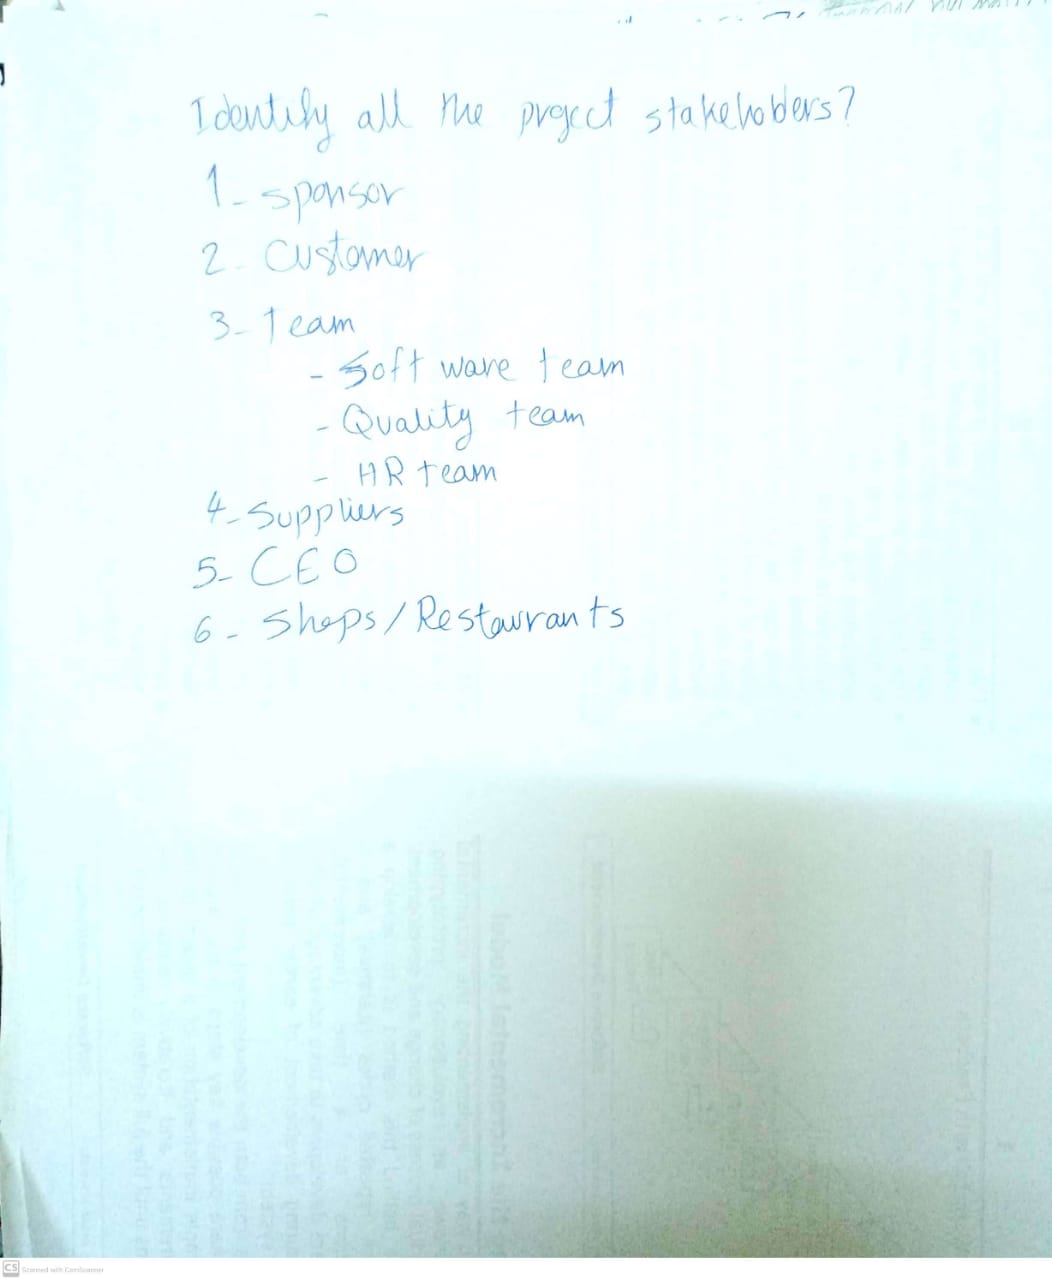 Identify all the project stakeholders?
1- sponsor
2- Customer
3- Team
- Soft ware team
- Quality team
- HR team
4- Suppliers
5- CEO
6- Shops/Restaurants
CS Scanned with CamScanner